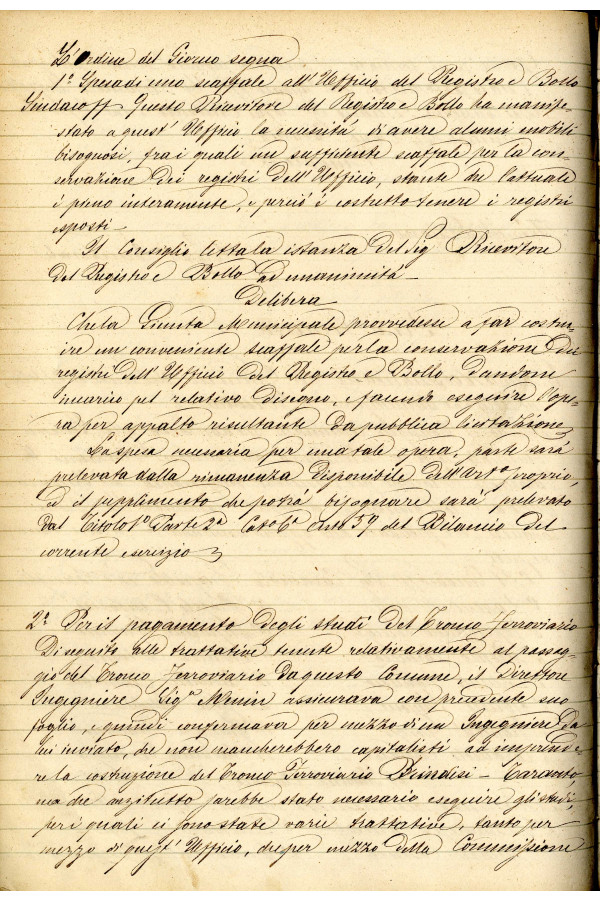 L'Ordine del Giorno segna
1º Spesa di uno scaffale all'Ufficio del Registro e Bollo
Sindaco ff. Questo Ricevitore del Registro e Bollo ha manife-
stato a quest'Ufficio la necessità di avere alcuni mobili
bisognosi, fra i quali un sufficiente scaffale per la con-
servazione dei registri dell'Ufficio, stante che l'attuale
è pieno interamente, e perciò è costretto tenere i registri
esposti.
Il Consiglio letta la istanza del Sig Ricevitore
del Registro e Bollo ad unanimità
Delibera
Che la Giunta Municipale provvedesse a far costru-
ire un conveniente scaffale per la conservazione dei
registri dell'Ufficio del Registro e Bollo, dandone
incarico pel relativo disegno, e facendo eseguire l'ope-
ra per appalto risultante da pubblica licitazione
La spesa necessaria per una tale opera, parte sarà
prelevata dalla rimanenza disponibile dell'Artº proprio,
ed il supplimento che potrà bisognare sarà prelevato
dal Titolo 1º Parte 2ª Catª 6ª Arto 57 del Bilancio del
corrente esercizio
2º Per il pagamento degli studi del Tronco Ferroviario
Di seguito alle trattative tenute relativamente al passag-
gio del Tronco Ferroviario da questo Comune, il Direttore
Ingegniere Sigr assicurava con precedente suo
foglio, e quindi confermava per mezzo di un Ingegniere da
lui inviato, che non mancherebbero capitalisti ad imprende-
re la costruzione del Tronco Ferroviario Brindisi - Taranto
ma che anzitutto sarebbe stato necessario eseguire gli studi,
per i quali ci sono state varie trattative, tanto per
mezzo di quest'Ufficio, che per mezzo della Commissione